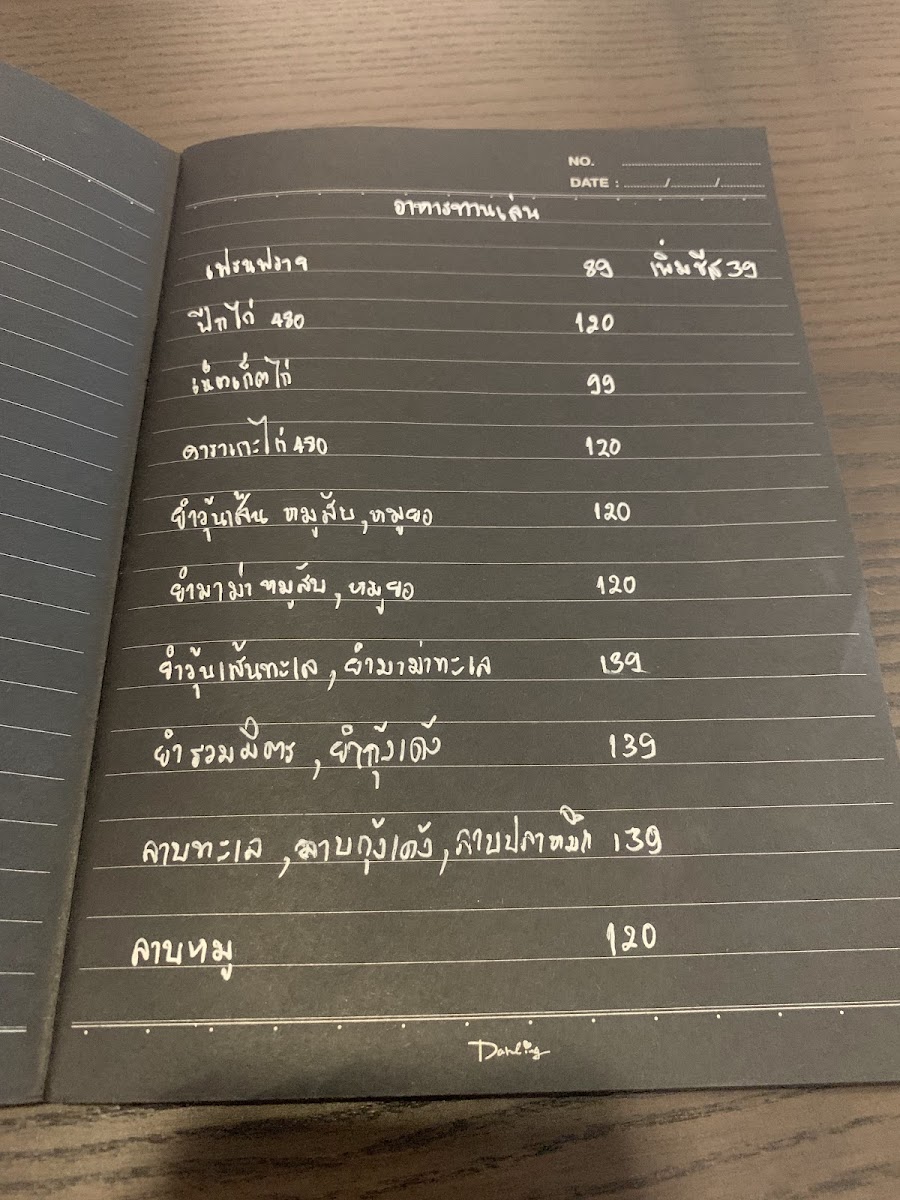 NO.
DATE : / /
อาหารทานเล่น
เฟรนฟราย 89 เพิ่มชีส 39
ปีกไก่ทอด 120
เน็ตเก็ตไก่ 99
คาราเกะไก่ทอด 120
ยำวุ้นเส้น หมูสับ,หมูยอ 120
ยำมาม่า หมูสับ,หมูยอ 120
ยำวุ้นเส้นทะเล,ยำมาม่าทะเล 139
ยำรวมมิตร,ยำกุ้งเด้ง 139
ลาบทะเล,ลาบกุ้งเด้ง,ลาบปลาหมึก 139
ลาบหมู 120
Darling